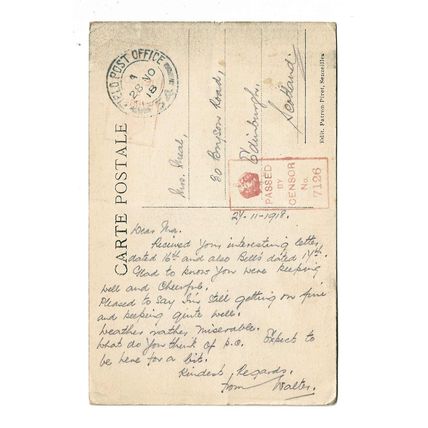 FIELD POST OFFICE
1
28 NO
18
CARTE POSTALE
Mrs.
80 Empson Road,
Edinburgh,
Scotland.
Edit. Patron-Piret, Seneffes
PASSED
BY
CENSOR
No.
7126
27-11-1918.
Dear Ma.
Recieved your interesting letter,
dated 16th and also Bell's dated 17th.
Glad to know you were keeping
well and Cheerful.
Pleased to say I'm still getting on fine
and keeping quite well.
Weather rather miserable.
What do you think of p.c. Expect to
be here for a bit.
Kindest Regards.
from Walter.